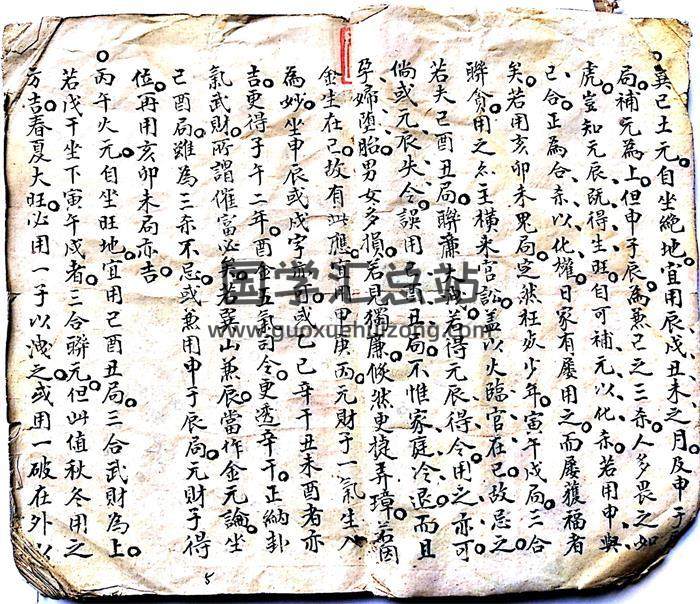 巽己土元自坐絶地宜用辰戌丑未之月及申子
局補元為上但申子辰為兼己之三杀人多畏之如
虎豈知元辰既得生旺自可補元以化杀若用申與
己合正為合杀以化權日家有屡用之而屡獲福者
矣若用亥卯未鬼局定然枉死少年寅午戌局三合
聯貪用之亦主横来官訟盖以火臨官在巳故忌之
若夫巳酉丑局聯廉 若得元辰得令用之亦可
倘或元辰失令誤用 酉丑局不惟家庭冷退而且
孕婦堕胎男女多損若見獨廉倐然更捷弄璋若因
金生在巳故有此應宜用甲庚丙元財子一氣生入
為妙坐申辰或戌字亦可或乙己辛干丑未酉者亦
吉更得子午二年酉金五氣司令更透辛干正納卦
氣武財所謂催富必矣若巽山兼辰當作金元論坐
己酉局雖為三杀不忌或兼用申子辰局元財子得
位再用亥卯未局亦吉
丙午火元自坐旺地宜用己酉丑局三合武財為上
若戊干坐下寅午戌者三合聯元但此值秋冬用之
方吉春夏大旺必用一子以洩之或用一破在外以
5
国学汇总站
www.guoxuehuizong.com